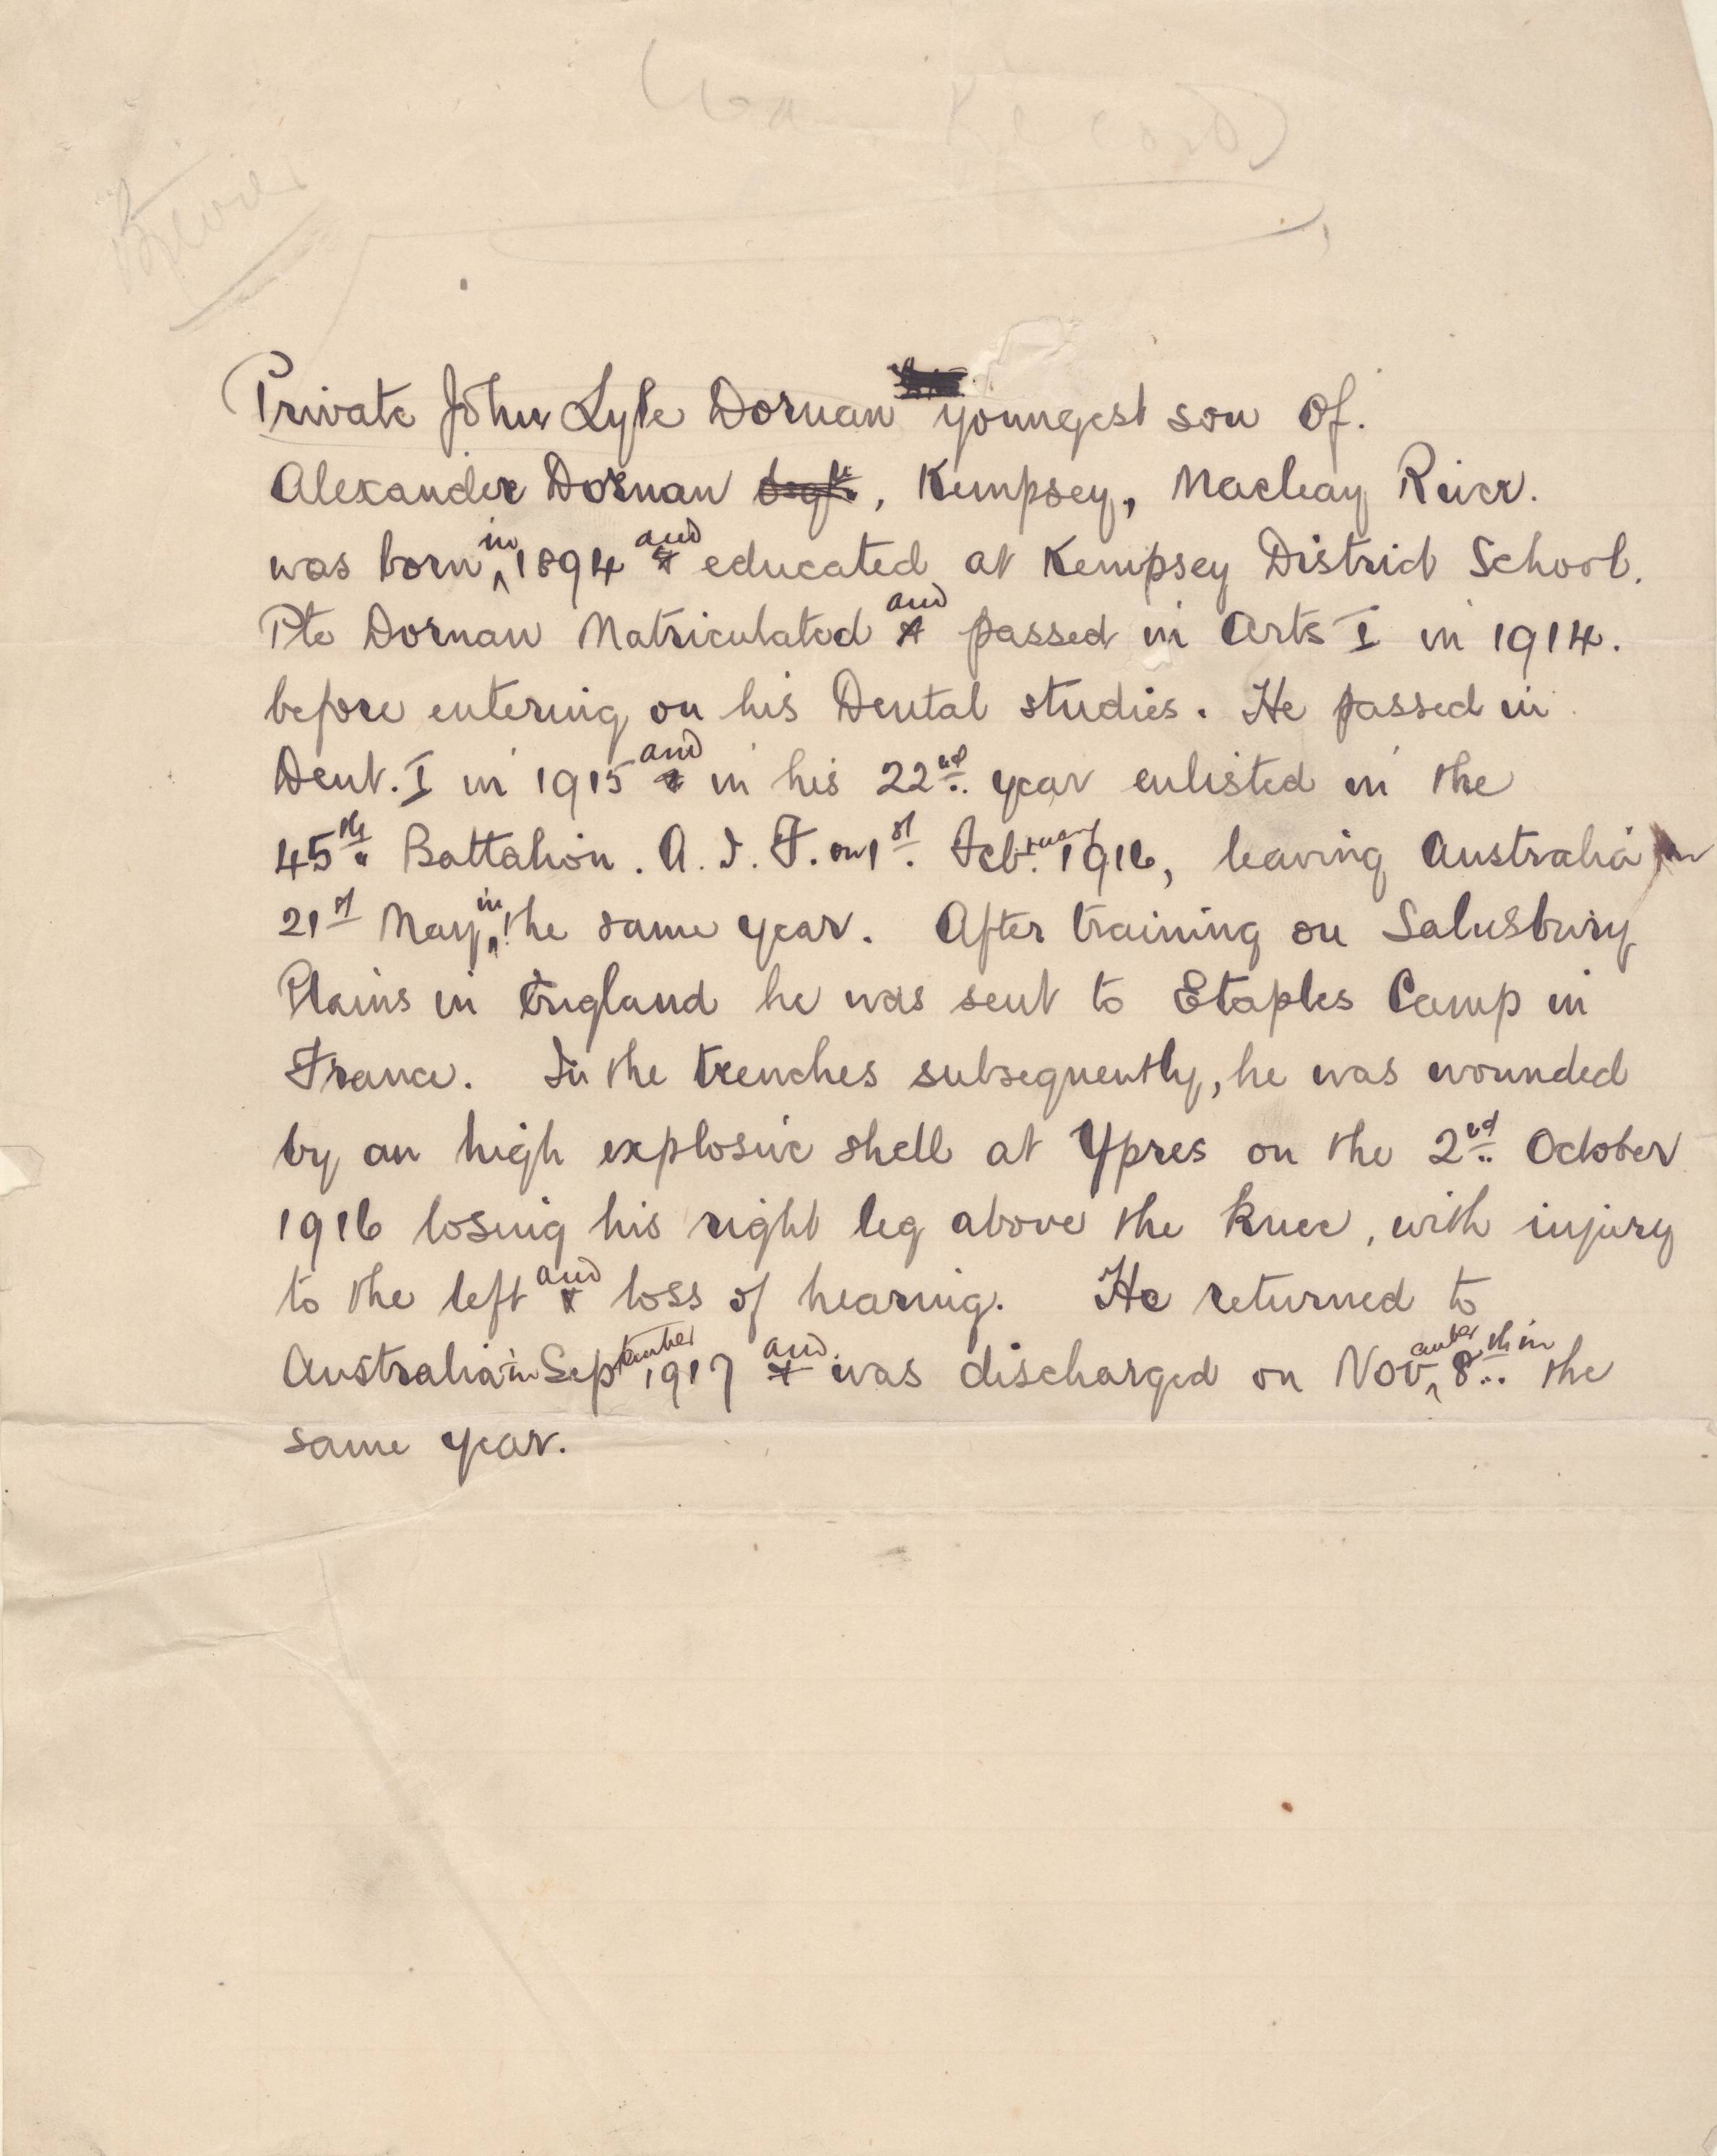 War Record
Private John Lyle Dornan youngest son of.
Alexander Dornan Esqr., Kempsey, Macleay River.
was born in 1894 and educated at Kempsey District School.
Pte Dornan Matriculated and passed in Arts I in 1914.
before entering on his Dental studies. He passed in
Dent. I in 1915 and in his 22nd year enlisted in the
45th Battalion. A. I. F. on 1st. February 1916, leaving Australia on
21st May in the same year. After training on Salusbury
Plains in England he was sent to Etaples Camp in
France. In the trenches subsequently, he was wounded
by an high explosive shell at Ypres on the 2nd October
1916 losing his right leg above the knee, with injury
to the left and loss of hearing. He returned to
Australia in September 1917 and was discharged on November 8th in the
same year.